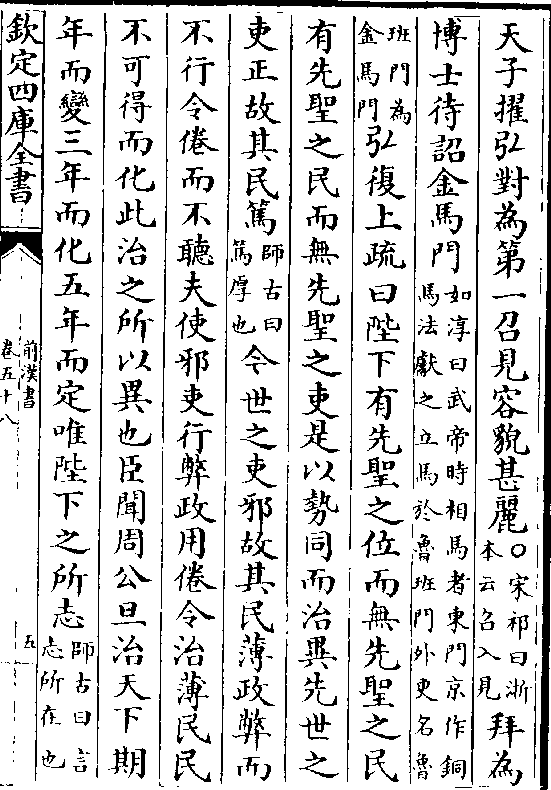 天子擢弘對為第一召見容貌甚麗○宋祁曰浙本云召入見拜為
博士待詔金馬門如淳曰武帝時相馬者東門京作銅馬法獻之立馬於魯班門外更名魯
班門為金馬門弘復上疏曰陛下有先聖之位而無先聖之民
有先聖之民而無先聖之吏是以勢同而治異先世之
吏正故其民篤師古曰篤厚也今世之吏邪故其民薄政弊而
不行令倦而不聽夫使邪吏行弊政用倦令治薄民民
不可得而化此治之所以異也臣聞周公旦治天下期
年而變三年而化五年而定唯陛下之所志師古曰言志所在也
欽定四庫全書
前漢書
卷五十八
五